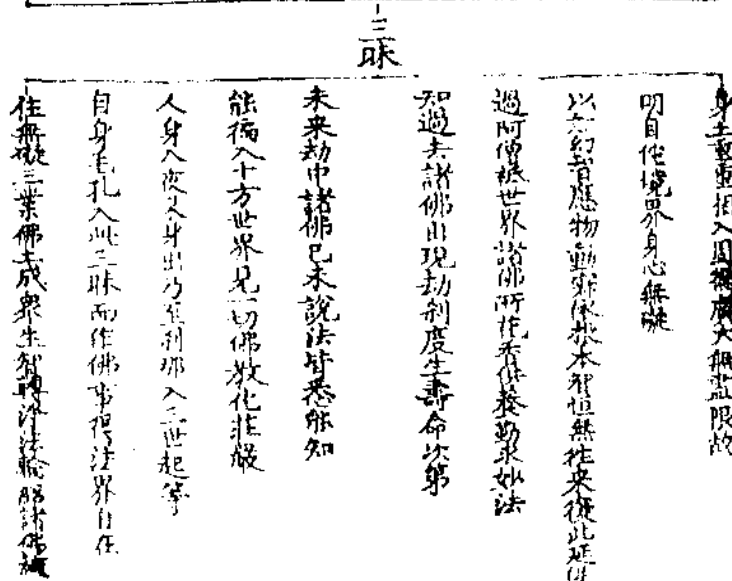 三昧
身土重重相入周徧廣大無盡限故
明自他境界身心無礙
以如幻智應物動寂依根本智恒無往來從此延促
過阿僧祇世界諸佛所花香供養勤求妙法
知過去諸佛出現劫刹度生壽命次第
未來劫中諸佛已未說法皆悉能知
能徧入十方世界見一切佛教化莊嚴
人身入夜叉身出乃至刹那入三世起等
自身毛孔入此三昧而作佛事得法界自在
住無礙三業佛土成衆生智轉淨法輪諸佛